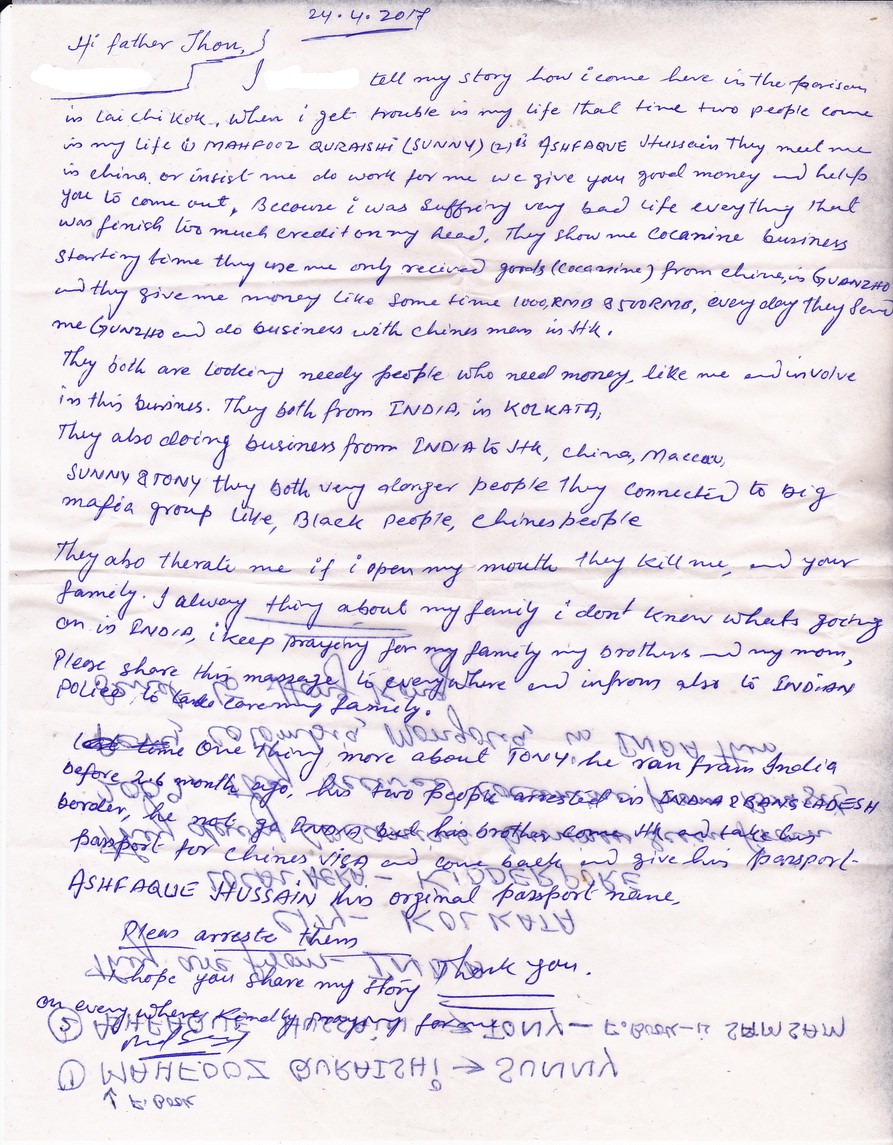 24.4.2017
Hi father Jhon,
I tell my story how i come here in the parison
in Lai chi kok. When i get trouble in my life that time two people come
in my life (1) MAHFOOZ QURAISHI (SUNNY) (2) is ASHFAQUE Hussain they meet me
in china. or insist me do work for me we give you good money and helps
you to come out, Becouse i was suffring very bad life eveything that
was finish too much credit on my head. They show me cocanine business
starting time they use me only recived goods (cocassine) from china, in GUANZHO
and they give me money like some time 1000,RMB & 500RMB, every day they send
me GUNZHO and do business with chines men in HK.
They both are looking needy people who need money, like me and involve
in this busines. They both from INDIA, in KOLKATA,
They also doing business from INDIA to HK, china, Maccau,
SUNNY & TONY they both very danger people they connected to big
mafia group like, Black people, chines people
They also therate me if i open my mouth they kill me, and your
family. I alway thing about my family i dont know whats going
on in INDIA, i keep praying for my family my brothers and my mom,
Please share this massage to everywhere and infrom also to INDIAN
Police to care my family.
time One thing more about TONY he ran from India
before 2 month ago, his two people arrested in INDIA & BANGLADESH
border, he not go INDIA but his brother come HK and take his
passport for chines visa and come back and give his passport-
ASHFAQUE HUSSAIN his orginal passport name,
Pleas arreste them
Thank you.
I hope you share my story
on every where kindly praying for me
(1) MAHFOOZ QURAISHI → SUNNY
↑ F. Book
(2) ASHFAQUE HUSSAIN TONY – F. Book –
they are from – INDIA
CITY – KOLKATA
LOCAL AERA – KIDDERPURE